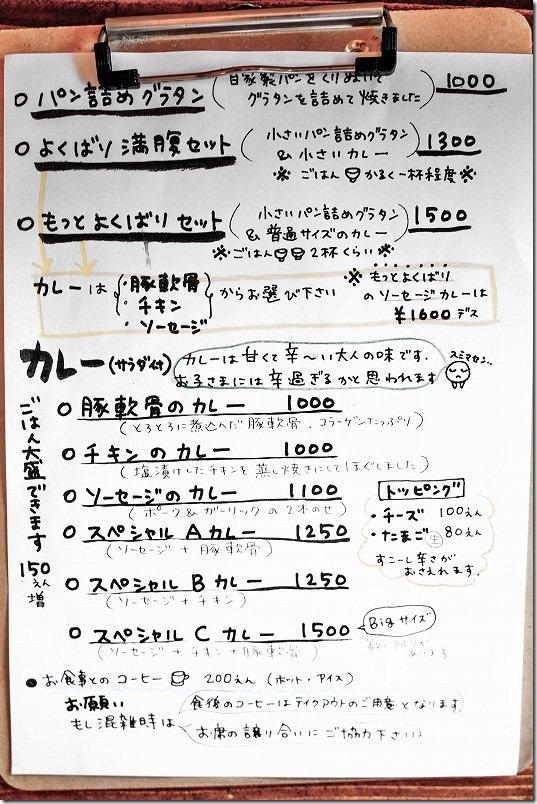 ○ パン詰めグラタン (自家製パンをくりぬいて 1000
グラタンを詰めて焼きました)
○ よくばり満腹セット (小さいパン詰めグラタン 1300
& 小さいカレー)
※ ごはん かるく一杯程度 ※
○ もっとよくばりセット (小さいパン詰めグラタン 1500
& 普通サイズのカレー)
※ ごはん 2杯くらい ※
カレーは ・豚軟骨 ・チキン ・ソーセージ からお選び下さい
※ もっとよくばり
のソーセージカレーは
¥1600デス
カレー (サラダ付)
カレーは甘くて辛〜い大人の味です.
お子さまには辛過ぎるかと思われます
スミマセン..
ごはん大盛できます
150えん増
○ 豚軟骨のカレー 1000
(とろとろに煮込んだ豚軟骨、コラーゲンたっぷり)
○ チキンのカレー 1000
(塩漬けしたチキンを蒸し焼きにしてほぐしました)
○ ソーセージのカレー 1100
(ポーク&ガーリックの2本のせ)
○ スペシャルAカレー 1250
(ソーセージ+豚軟骨)
○ スペシャルBカレー 1250
(ソーセージ+チキン)
○ スペシャルCカレー 1500
(ソーセージ+チキン+豚軟骨)
Bigサイズ
トッピング
・チーズ 100えん
・たまご 生 80えん
すこーし辛さが
おさえれます.
● お食事とのコーヒー 200えん (ホット・アイス)
お願い
もし混雑時は
食後のコーヒーはテイクアウトのご用意となります
お席の譲り合いにご協力下さい